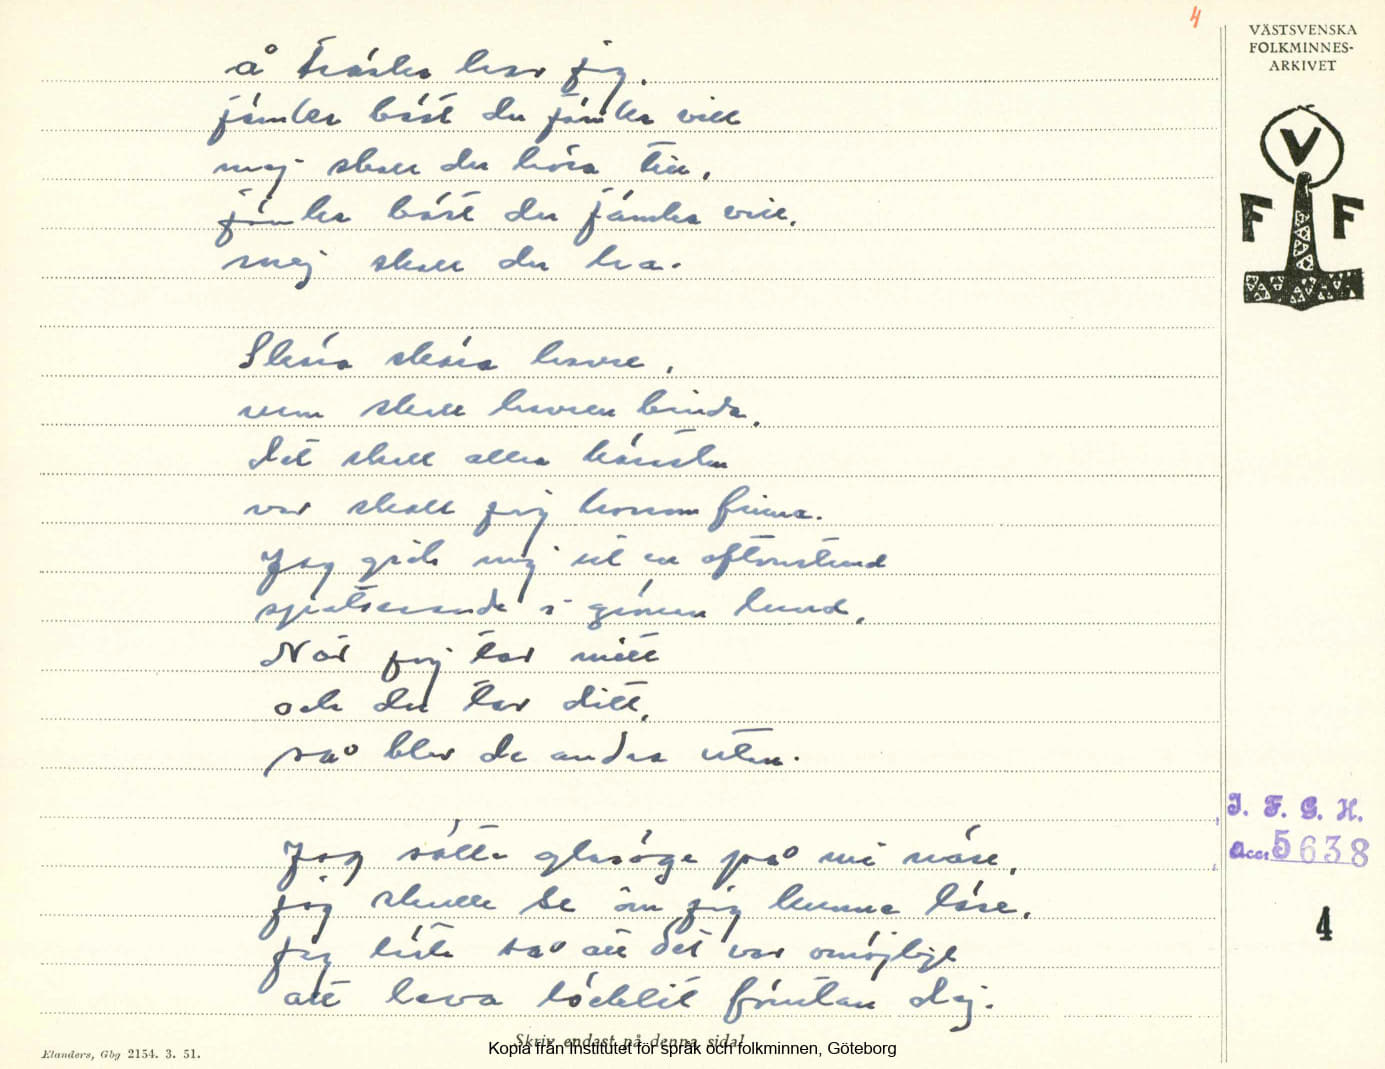 4
VÄSTSVENSKA
FOLKMINNES-
ARKIVET
V
F F
å har jag.
jämka bäst du jämka vill
mej skall du höra till,
jämka bäst du jämka vill,
mej skall du ha.
Skära skära havre,
vem skall havren binda,
Det skall allra kärestan
var skall jag honom finna.
Jag gick mig ut en aftonstund
spatserande i grönan lund,
När jag tar mitt
och du tar ditt,
så blir de andra utan.
Jag sätte glasöga på mi näse,
jag skulle se om jag kunne läse,
Jag läste så att det var omöjligt
att leva löcklit förutan dej.
I. F. G. H.
Acc: 5638
4
Skriv endast på denna sida!
Kopia från Institutet för språk och folkminnen, Göteborg
Elanders, Gbg 2154. 3. 51.